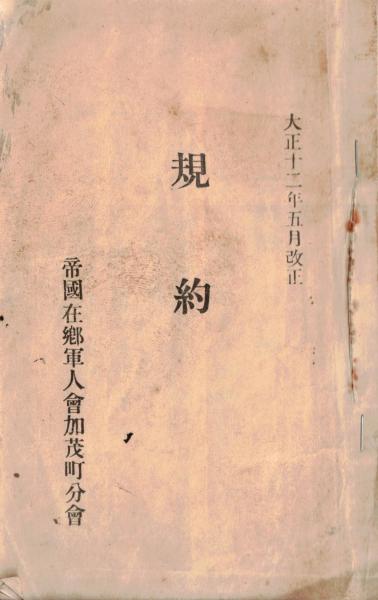 大正十二年五月改正
規約
帝國在鄕軍人會加茂町分會